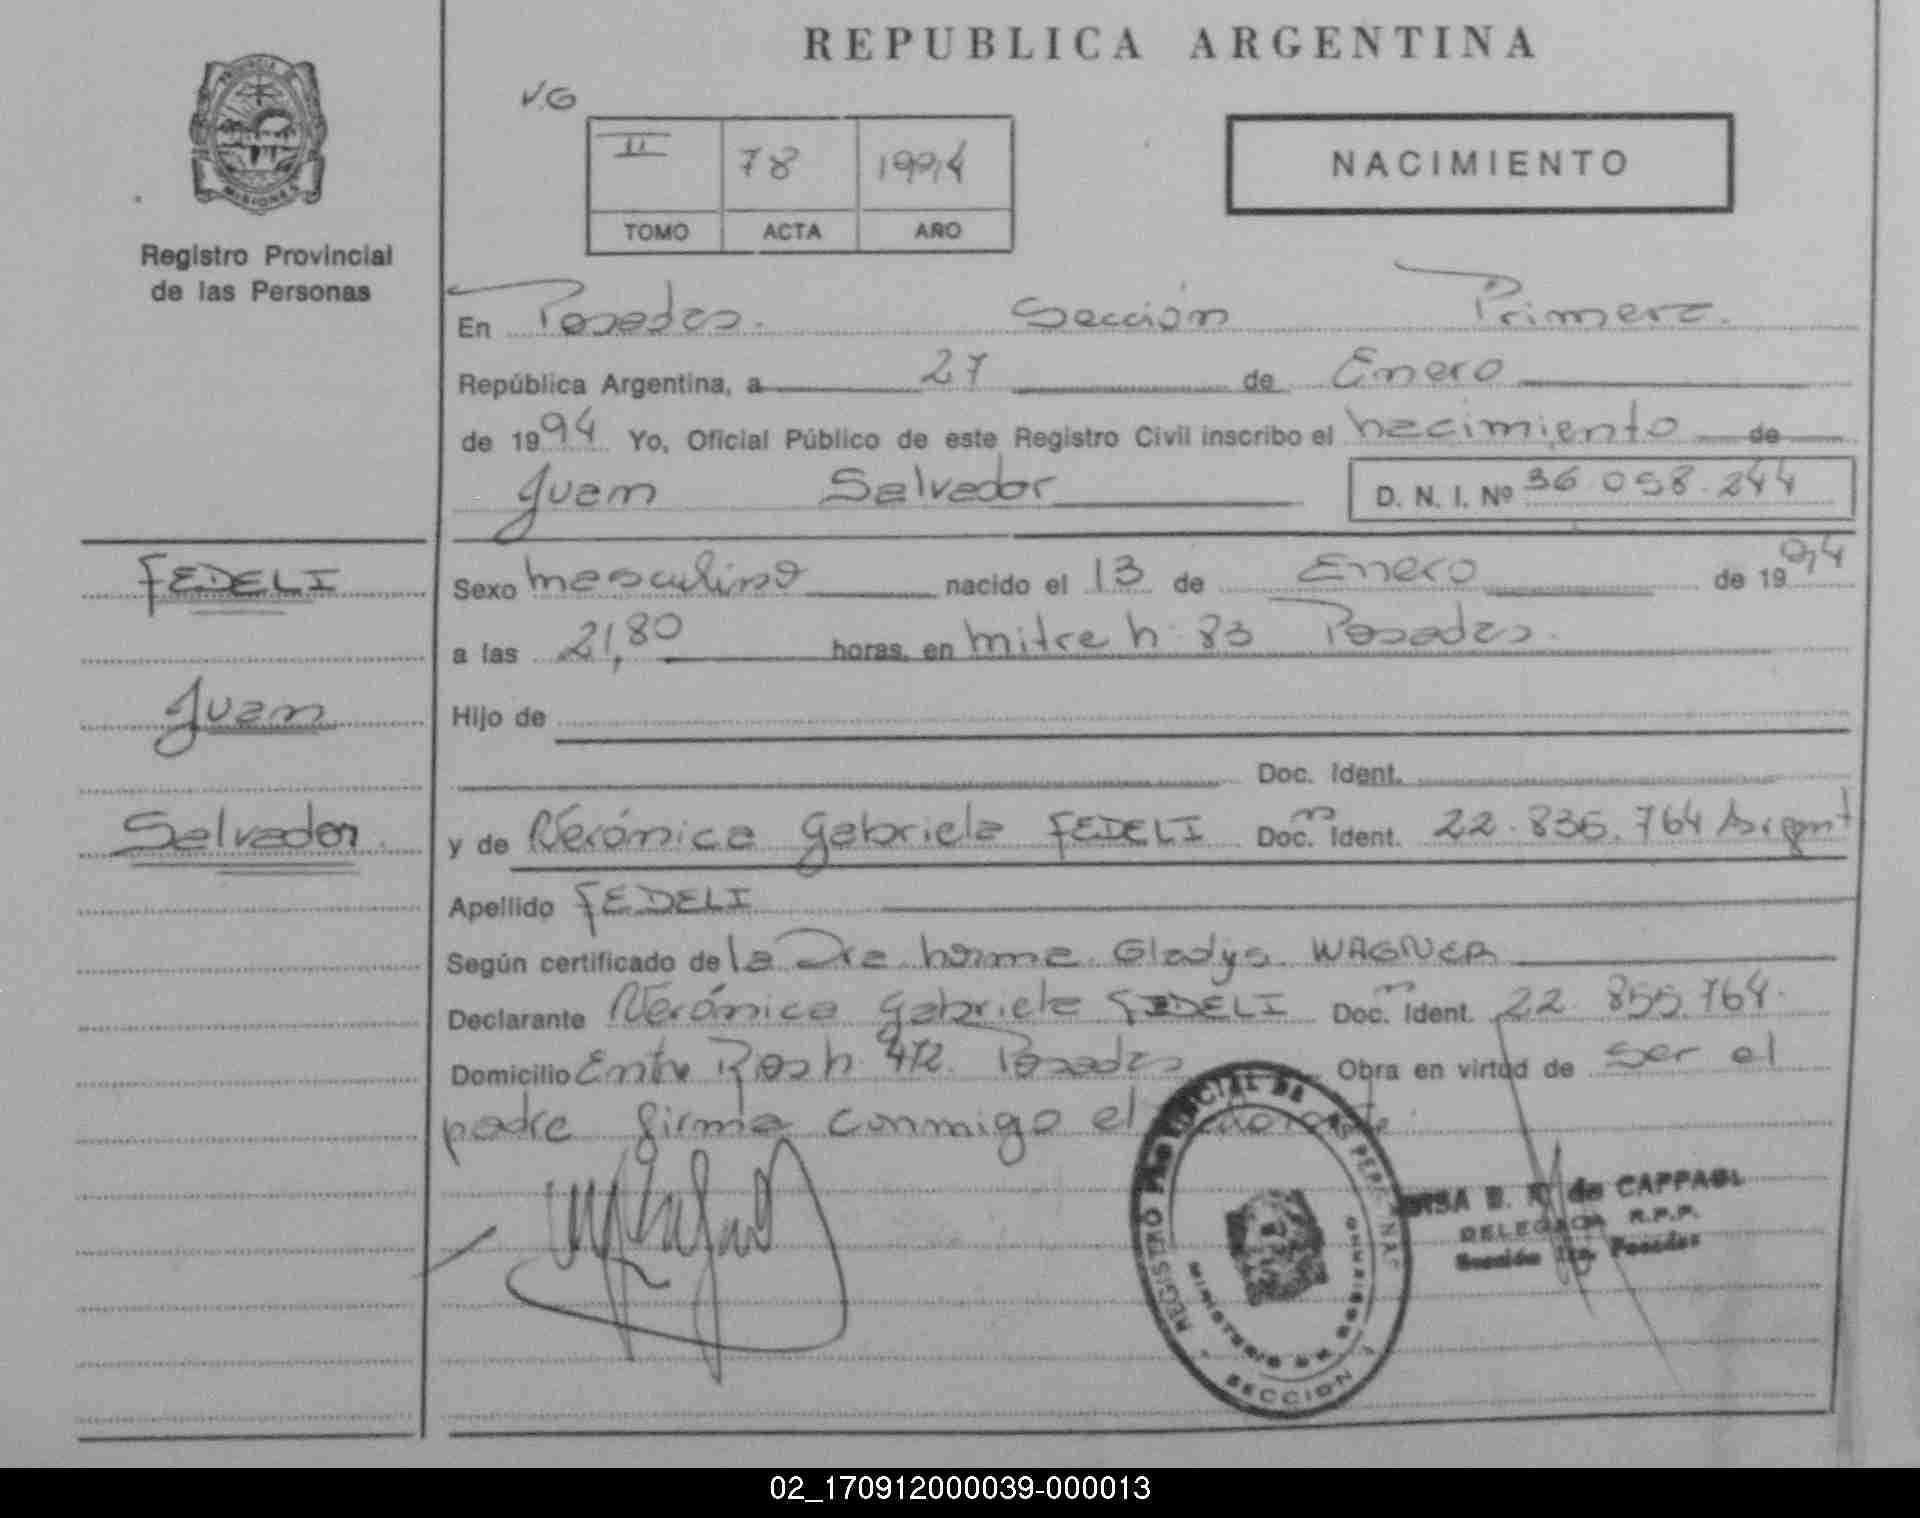 REPUBLICA ARGENTINA
PROVINCIA DE
MISIONES
Registro Provincial
de las Personas
V.G
II 78 1994
TOMO ACTA AÑO
NACIMIENTO
En Posadas. Sección Primera.
República Argentina, a 27 de Enero
de 1994 Yo, Oficial Público de este Registro Civil inscribo el nacimiento de
Juan Salvador D. N. I. Nº 36.058.244
FEDELI
Juan
Salvador
Sexo masculino nacido el 13 de Enero de 1994
a las 21,80 horas, en mitre n: 83 Posadas.
Hijo de
Doc. Ident.
y de Verónica Gabriela FEDELI Doc. Ident. 22.836.764 Argent
Apellido FEDELI
Según certificado de la Dra norma Gladys WAGNER
Declarante Verónica Gabriela FEDELI Doc. Ident. 22 855.764.
Domicilio Entre Rios n 472. Posadas Obra en virtud de ser el
padre firma conmigo el
REGISTRO PROVINCIAL DE LAS PERSONAS
MINISTERIO DE GOBIERNO
SECCION 1
B. R. de CAPPAGL
DELEGADA R.P.P.
Sección 1ra. Posadas
02_170912000039-000013